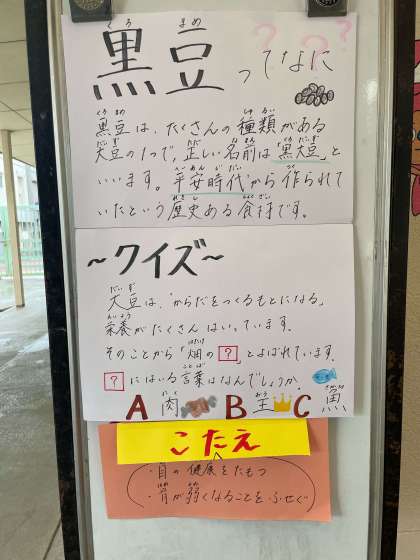 黒豆ってなに
黒豆は、たくさんの種類がある
大豆の1つで、正しい名前は「黒大豆」と
いいます。平安時代から作られて
いたという歴史ある食材です。
~クイズ~
大豆は、「からだをつくるもとになる」
栄養がたくさんはいっています。
そのことから「畑の?」とよばれています。
?にはいる言葉はなんでしょうか。
A 肉 B 王 C 魚
こたえ
・目の健康をたもつ
・骨が弱くなることをふせぐ